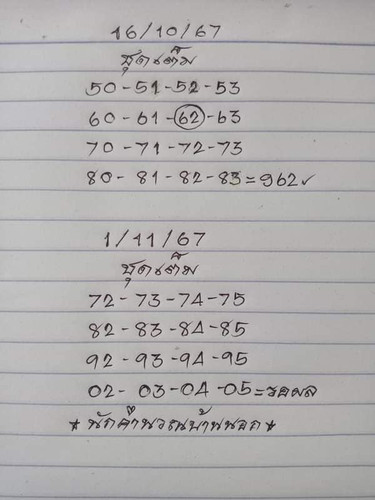 16/10/67
ชุดเต็ม
50-51-52-53
60-61-62-63
70-71-72-73
80-81-82-83=962✓
1/11/67
ชุดเต็ม
72-73-74-75
82-83-84-85
92-93-94-95
02-03-04-05=รอผล
*นักคำนวณบ้านนอก*